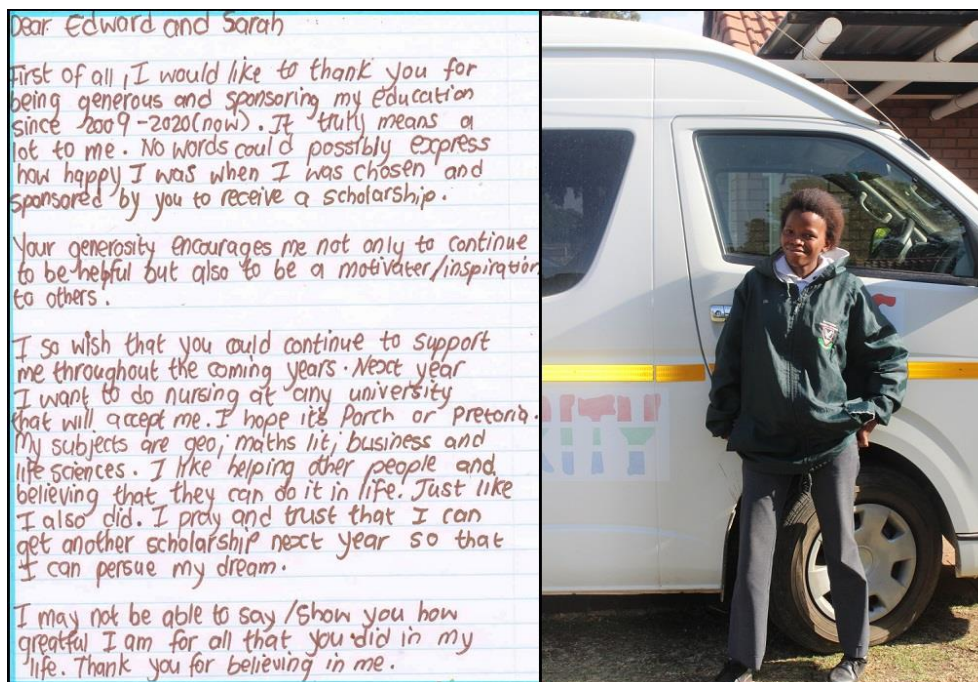 Dear Edward and Sarah
First of all, I would like to thank you for
being generous and sponsoring my education
since 2009-2020(now). It truly means a
lot to me. No words could possibly express
how happy I was when I was chosen and
sponsored by you to receive a scholarship.
Your generosity encourages me not only to continue
to be helpful but also to be a motivater/inspiration
to others.
I so wish that you could continue to support
me throughout the coming years. Next year
I want to do nursing at any university
that will accept me. I hope it's Porch or Pretoria.
My subjects are geo; maths lit; business and
life sciences. I like helping other people and
believing that they can do it in life. Just like
I also did. I pray and trust that I can
get another scholarship next year so that
I can persue my dream.
I may not be able to say/show you how
greatful I am for all that you did in my
life. Thank you for believing in me.